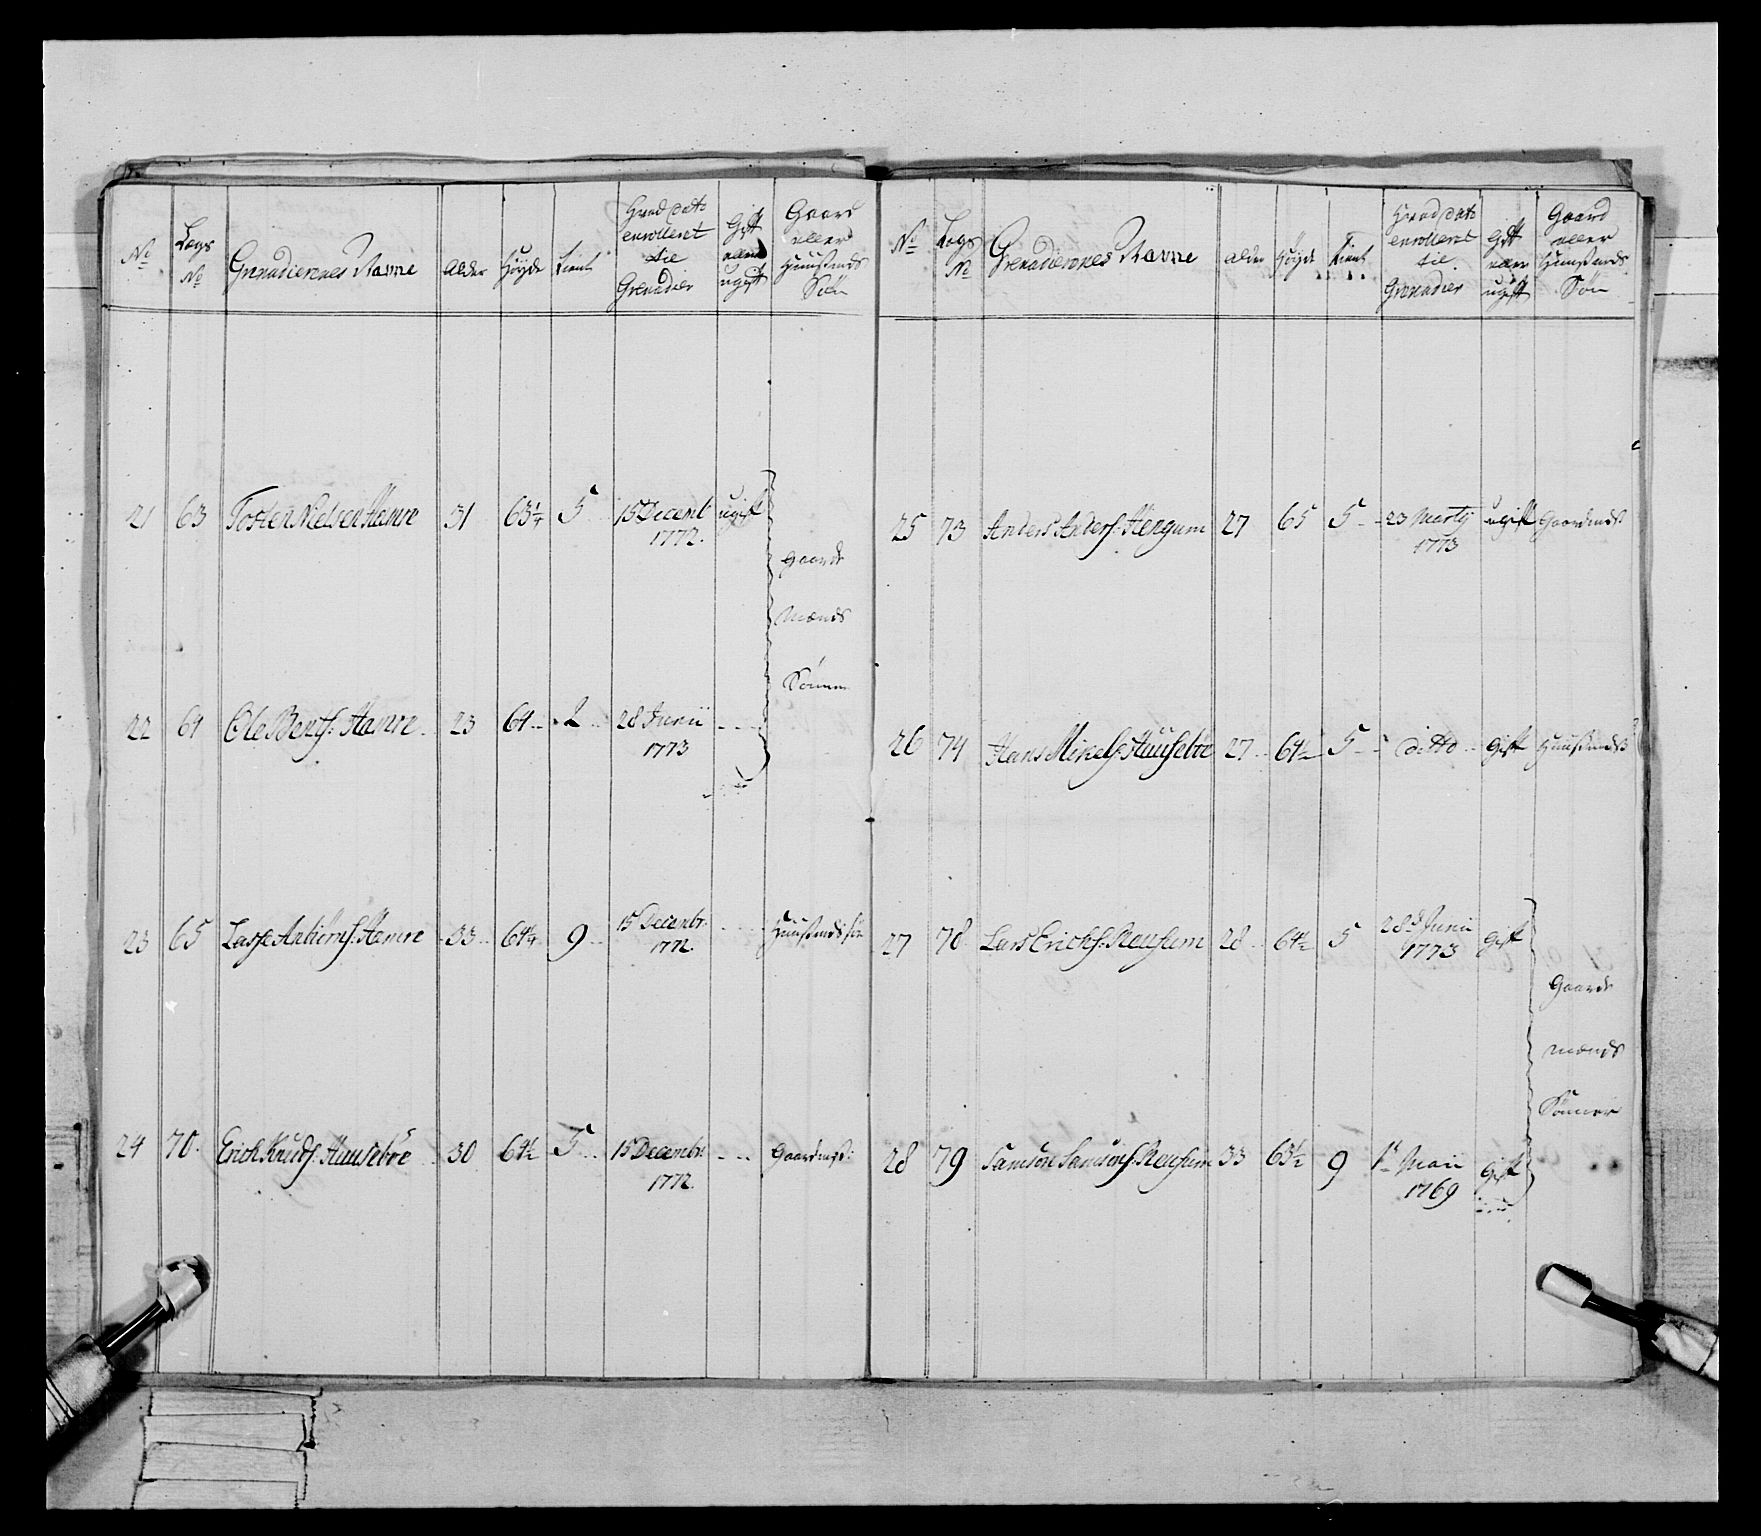 No Lægs No Grenadierernes Navne Alder Høyde tient Hvad dato enrolleret til Grenadier Gift eller ugift Gaard eller Huusmands Søn
21 63 Tosten Nielsen Hamre 31 63¼ 5 15 Decemb 1772. ugift
Gaard Mænds Sønner
22 64 Ole Bentˢ: Hamre 23 64 2 28 Junii 1773
23 65 Lasse Hamre 33 64¼ 9 15 Decembr: 1772. Huusmands søn
24 70. Erich Knudˢ. Huusebøe 30 64½ 5 15 Decembr: 1772. Gaardmˢ:
No Lægs No Grenadierernes Navne alder Høyde tient Hvad dato enrolleret til Grenadier Gift eller ugift Gaard eller Huusmands Søn
25 73 Anders Andersˢ: 27 65 5 23 Marty 1773 ugift Gaardmdˢ
26 74 Hans Mikelˢ: Huusebøe 27 64½ 5 ditto Gift Huusmdˢ
27 78 Lars Erichˢ: Reusum 28 64½ 5 28d Junii 1773 Gift
Gaard mænds Sønner
28 79 Samson Samsonˢ: Reusum 33 63½ 9 1t Maii 1769 Gift